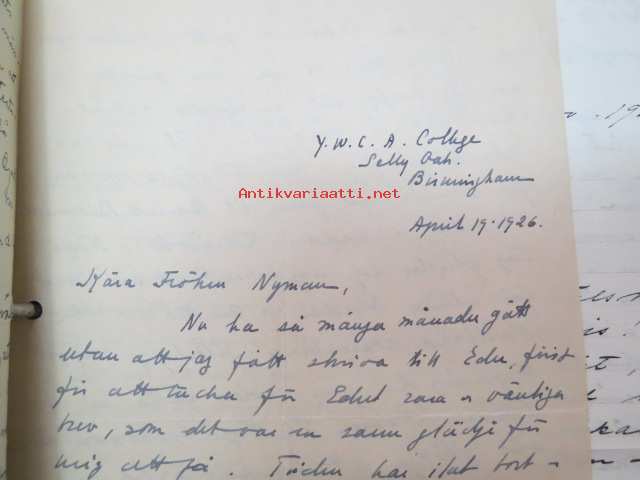 Y. W. C. A. College
Selly Oak.
Birmingham
Antikvariaatti.net
April 19. 1926.
Kära Fröken Nyman,
Nu ha så många månader gått
utan att jag fått skriva till Eder, först
för att tacka för Edert rara o vänliga
brev, som det var en sann glädje för
mig att få. Tiden har ilat bort -